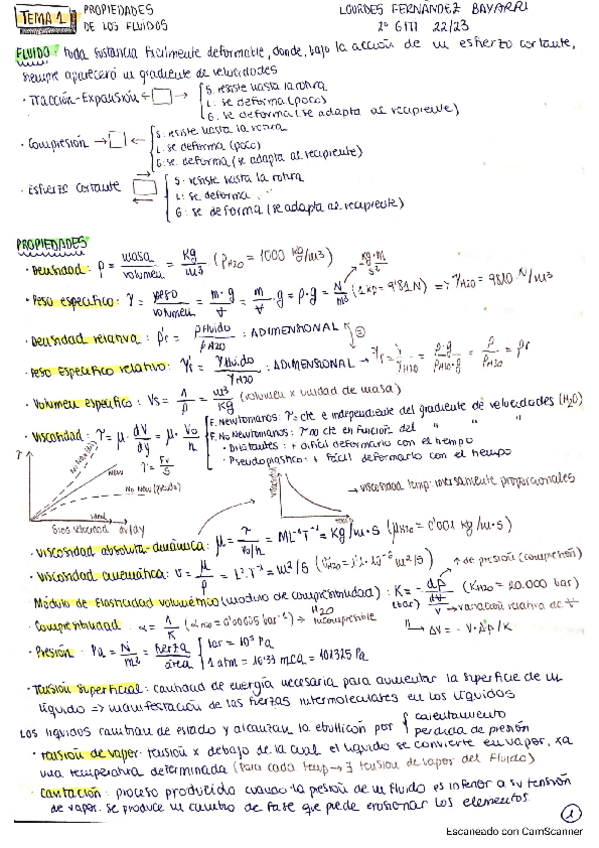 TEMA 1 PROPIEDADES DE LOS FLUIDOS
LOURDES FERNÁNDEZ BAYARRI
2º GITI 22/23
FLUIDO: toda sustancia fácilmente deformable, donde, bajo la acción de un esfuerzo cortante,
siempre aparecerá un gradiente de velocidades
· Tracción-Expansión
S: resiste hasta la rotura
L: se deforma (poco)
G: se deforma (se adapta al recipiente)
· Compresión
S: resiste hasta la rotura
L: se deforma (poco)
G: se deforma (se adapta al recipiente)
· Esfuerzo cortante
S: resiste hasta la rotura
L: se deforma
G: se deforma (se adapta al recipiente)
PROPIEDADES
· Densidad: ρ = masa/volumen = kg/m³ (ρH2O = 1000 kg/m³)
· Peso específico: γ = peso/volumen = m·g/V = m/V · g = ρ·g = N/m³ (1kp = 9'81N) => γH2O = 9810 N/m³
kg·m/s²
· Densidad relativa: ρ'r = ρfluido/ρH2O : ADIMENSIONAL
· Peso específico relativo: γ'r = γfluido/γH2O : ADIMENSIONAL → γr = γ/γH2O = ρ·g/ρH2O·g = ρ/ρH2O = ρr
· Volumen específico: Vs = 1/ρ = m³/kg (volumen x unidad de masa)
· Viscosidad: τ = μ · dV/dy = μ · V0/h
F. Newtonianos: τ = cte e independiente del gradiente de velocidades (H2O)
F. No Newtonianos: τ no cte en función del " " "
· Dilatantes: + difícil deformarlo con el tiempo
· Pseudoplástico: + fácil deformarlo con el tiempo
τ = Fv/S
New
No New (pseudo)
Grad velocidad dv/dy
→ viscosidad temp: inversamente proporcionales
· Viscosidad absoluta-dinámica: μ = τ/V0/h = ML⁻¹T⁻¹ = kg/m·s (μH2O = 0'001 kg/m·s)
· Viscosidad cinemática: υ = μ/ρ = L²·T⁻¹ = m²/s (υH2O = 1'1·10⁻⁶ m²/s)
↑ de presión (compresión)
Módulo de elasticidad volumétrico (modulo de compresibilidad): K = - dp/dV/V (KH2O = 20.000 bar)
(bar)
→ variación relativa de V
· Compresibilidad: α = 1/K (αH2O = 0'00005 bar⁻¹) => H2O incompresible
→ ΔV = - V·Δp/K
· Presión: Pa = N/m² = fuerza/área
1bar = 10⁵ Pa
1 atm = 10'33 mca = 101325 Pa
· Tensión superficial: cantidad de energía necesaria para aumentar la superficie de un
líquido => manifestación de las fuerzas intermoleculares en los líquidos
Los líquidos cambian de estado y alcanzan la ebullición por
calentamiento
perdida de presión
· Tensión de vapor: tensión x debajo de la cual el líquido se convierte en vapor, xa
una temperatura determinada (para cada temp → ∃ tensión de vapor del fluido)
· Cavitación: proceso producido cuando la presión de un fluido es inferior a su tensión
de vapor. se produce un cambio de fase que puede erosionar los elementos.
1
Escaneado con CamScanner